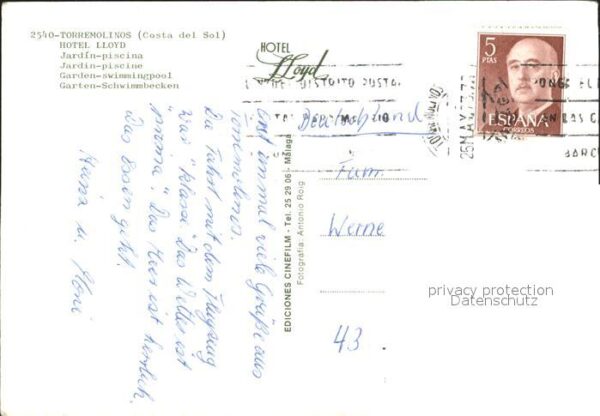 2540-TORREMOLINOS (Costa del Sol)
HOTEL LLOYD
Jardín-piscina
Jardin-piscine
Garden-swimmingpool
Garten-Schwimmbecken
HOTEL
Lloyd
5
PTAS
ESPAÑA
CORREOS
BARC
Erst einmal viele Grüße aus
Torremolinos.
Die Fahrt mit dem Flugzeug
war "klasse". Das Wetter ist
"prima". Das Meer ist herrlich.
Das Essen geht.
Maria u. Moni
EDICIONES CINEFILM - Tel. 25 29 06 - Málaga
Fotografía: Antonio Roig
Deutschland
Fam.
Werne
43
privacy protection
Datenschutz